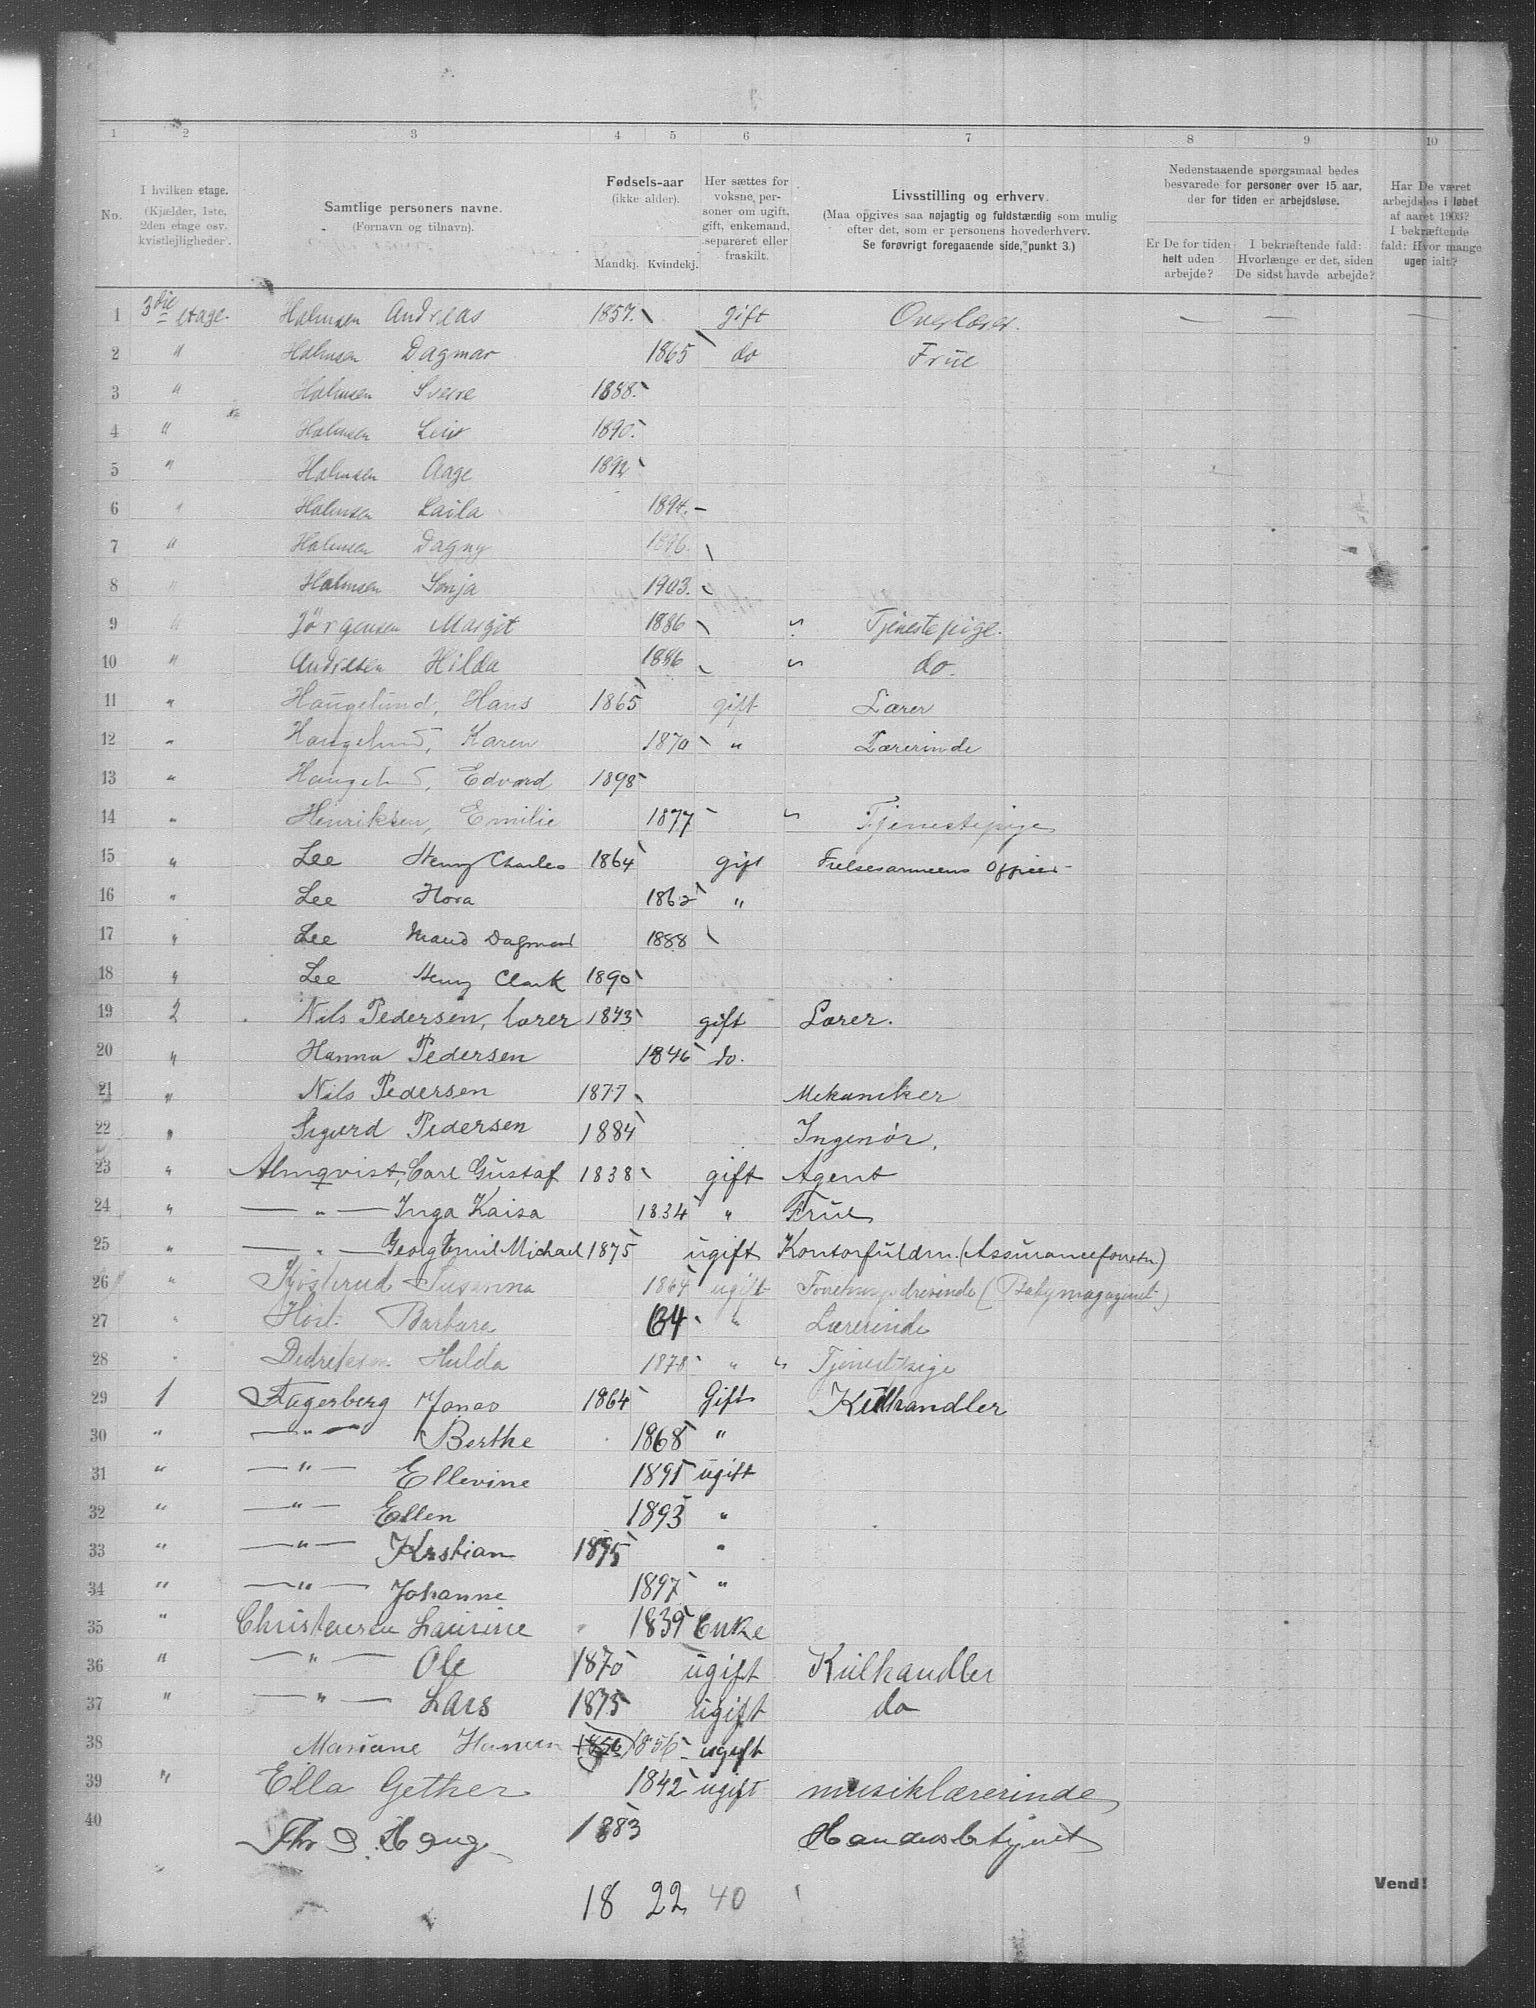 1 2 3 4 5 6 7 8 9 10
No.
I hvilken etage.
(Kjælder, 1ste,
2den etage osv.
kvistlejligheder).
Samtlige personers navne.
(Fornavn og tilnavn).
Fødsels-aar
(ikke alder).
Mandkj. Kvindekj.
Her sættes for
voksne per-
soner om ugift,
gift, enkemand,
separeret eller
fraskilt.
Livsstilling og erhverv.
(Maa opgives saa nøjagtig og fuldstændig som mulig
efter det, som er personens hovederhverv.
Se forøvrigt foregaaende side, punkt 3.)
Nedenstaaende spørgsmaal bedes
besvarede for personer over 15 aar,
der for tiden er arbejdsløse.
Er De for tiden
helt uden
arbejde?
I bekræftende fald:
Hvorlænge er det, siden
De sidst havde arbejde?
Har De været
arbejdsløs i løbet
af aaret 1903?
I bekræftende
fald: Hvor mange
uger ialt?
1 3die etage. Halmsen Andreas 1857. gift Overlærer. — — —
2 " Halmsen Dagmar 1865 do Frue
3 " Halmsen Sverre 1888.
4 " Halmsen Leiv 1890.
5 " Halmsen Aage 1892
6 " Halmsen Laila 1894.
7 " Halmsen Dagny 1896.
8 " Halmsen Sonja 1903.
9 " Jörgensen Margit 1886 " Tjenestepige.
10 " Andresen Hilda 1886 " do.
11 " Haugelund, Hans 1865 gift Lærer
12 " Haugelund, Karen 1870 " Lærerinde
13 " Haugelund, Edvard 1898
14 " Henriksen, Emilie 1877 " Tjenestepige
15 " Lee Henry Charles 1864 gift Frelsesarmeens Officer
16 " Lee Flora 1862 "
17 " Lee Maud Dagmar 1888
18 " Lee Henry Clark 1890
19 2 Nils Pedersen, lærer 1843 gift Lærer.
20 " Hanna Pedersen 1846 do.
21 " Nils Pedersen 1877 Mekaniker
22 " Sigurd Pedersen 1884 Ingenør.
23 " Almqvist, Carl Gustaf 1838 gift Agent
24 " — " — Inga Kaisa 1834 " Frue
25 " — " — Georg Emil Michael 1875 ugift Kontorfuldm. (Assuranceforretn)
26 " Susanna 1864 ugift (Babymagazinet)
27 " Høst Barbara 64 " Lærerinde
28 " Hulda 1878 " " Tjenestpige
29 1 Fagerberg Jonas 1864 Gift Kulhandler
30 " — " — Berthe 1868 "
31 " — " — Ellevine 1891 ugift
32 " — " — Ellen 1893 "
33 " — " — Kristian 1895 "
34 " — " — Johanne 1897 "
35 " Christensen Laurine 1839 Enke
36 " — " — Ole 1870 ugift Kulhandler
37 " — " — Lars 1875 ugift do
38 Mariane Hansen 1856 1856 ugift
39 " Ella Gether 1842 ugift musiklærerinde
40 1883
18 22 40
Vend!